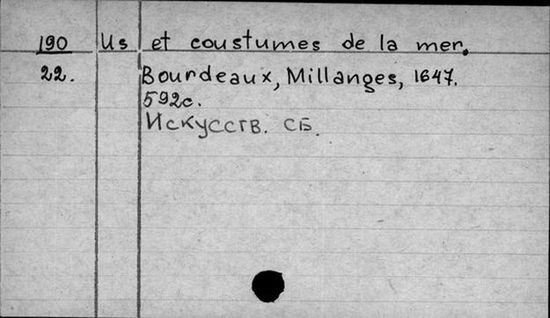 190 Us et coustumes de la mer.
22. Bourdeaux, Millanges, 1647.
592с.
Искусств. СБ.